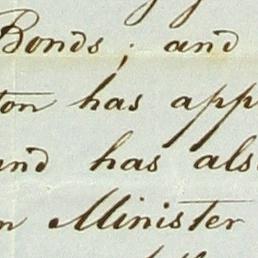 Bonds; and
ton has app
and has als
n Minister